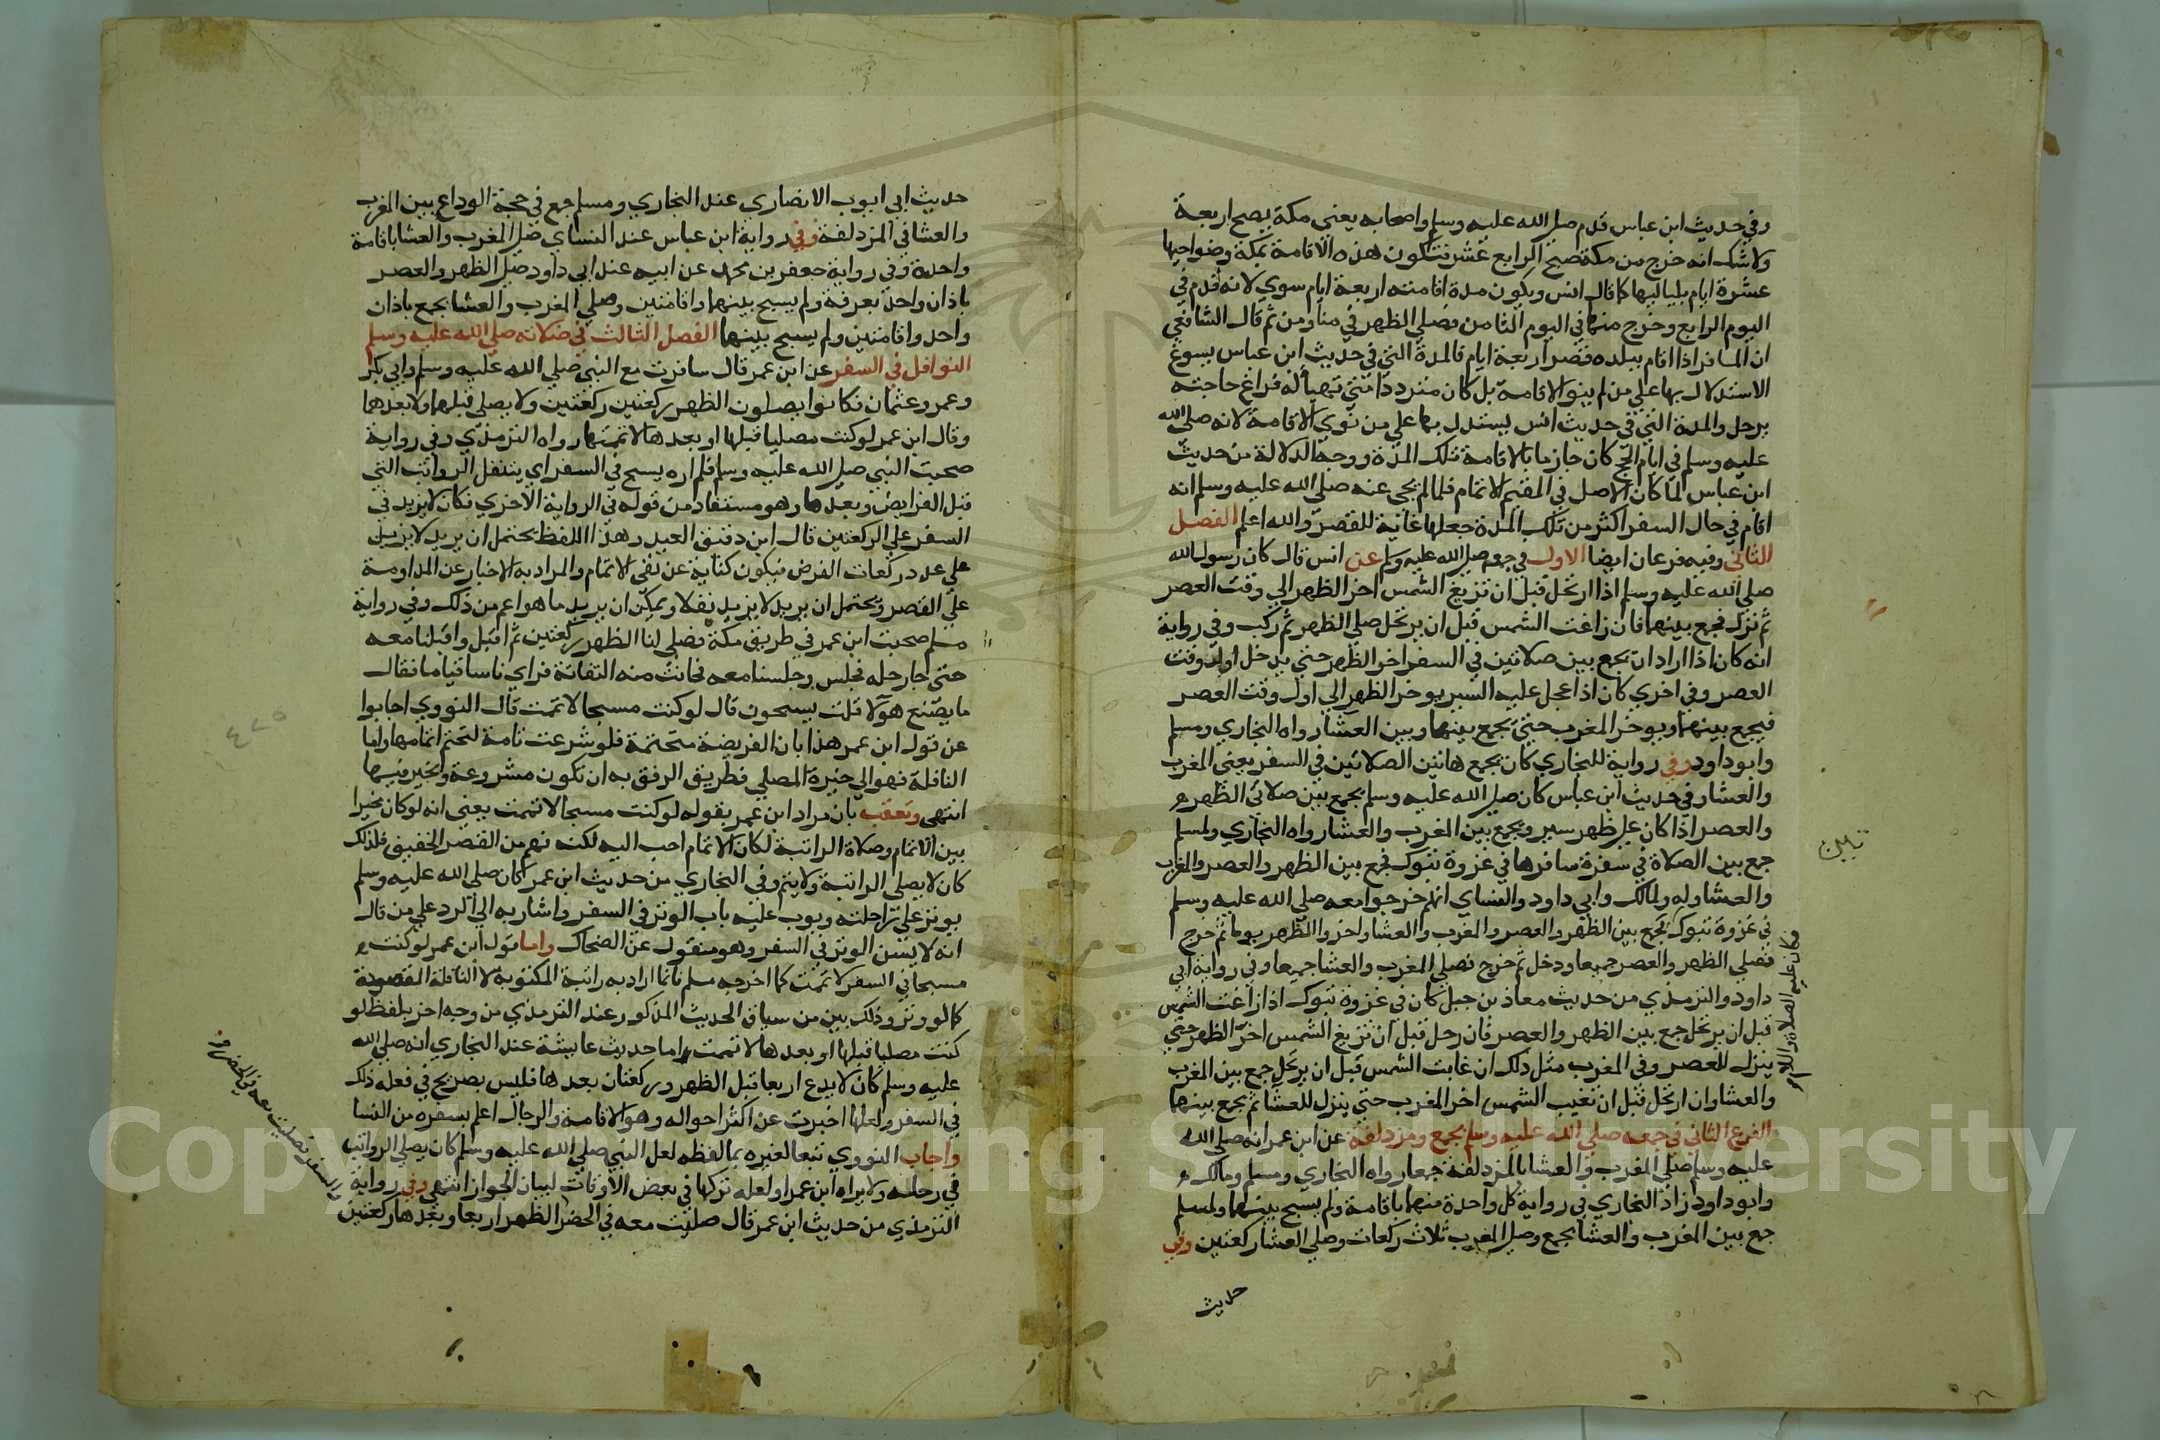 وفي حديث ابن عباس قدم صلى الله عليه وسلم واصحابه يعني مكة بصبح اربعة
ولا شك انه خرج من مكة صبح الرابع عشر فتكون هذه الاقامة بمكة وضواحيها
عشرة ايام بلياليها كما قال انس ويكون مدة اقامته اربعة ايام سوي لانه قدم في
اليوم الرابع وخرج منها في اليوم الثامن فصلي الظهر في منا ومن ثم قال الشافعي
ان المسافر اذا اقام ببلده قصر اربعة ايام فالمدة التي في حديث ابن عباس يسوغ
الاستدلال بها علي من لم ينو الاقامة بل كان مترددا متي تهيأ له فراغ حاجته
يرحل والمدة التي في حديث انس يستدل بها علي من نوي الاقامة لانه صلى الله
عليه وسلم في ايام الحج كان جازما بالاقامة تلك المدة ووجه الدلالة من حديث
ابن عباس لما كان الاصل في المقيم الاتمام فلما لم يجي عنه صلى الله عليه وسلم انه
اقام في حال السفر اكثر من تلك المدة جعلها غاية للقصر والله اعلم الفصل
الثاني وفيه فرعان ايضا الاول في جمعه صلى الله عليه وسلم عن انس قال كان رسول الله
صلى الله عليه وسلم اذا ارتحل قبل ان تزيغ الشمس اخر الظهر الي وقت العصر
ثم نزل فجمع بينهما فان زاغت الشمس قبل ان يرتحل صلي الظهر ثم ركب وفي رواية
انه كان اذا اراد ان يجمع بين صلاتين في السفر اخر الظهر حتي يدخل اول وقت
العصر وفي اخري كان اذا عجل عليه السير يوخر الظهر الي اول وقت العصر
فيجمع بينهما ويوخر المغرب حتي يجمع بينهما وبين العشا رواه البخاري ومسلم
وابو داود وفي رواية للبخاري كان يجمع هاتين الصلاتين في السفر يعني المغرب
والعشا وفي حديث ابن عباس كان صلى الله عليه وسلم يجمع بين صلاتي الظهر
والعصر اذا كان علي ظهر سير ويجمع بين المغرب والعشا رواه البخاري ولمسلم
جمع بين الصلاة في سفرة سافرها في غزوة تبوك فجمع بين الظهر والعصر والمغرب
والعشا وله ولمالك وابي داود والنساي انهم خرجوا معه صلى الله عليه وسلم
في غزوة تبوك فجمع بين الظهر والعصر والمغرب والعشا واخر الظهر يوما ثم خرج
فصلي الظهر والعصر جميعا ودخل ثم خرج فصلي المغرب والعشا جميعا وفي رواية ابي
داود والترمذي من حديث معاذ بن جبل كان في غزوة تبوك اذا زاغت الشمس
قبل ان يرتحل جمع بين الظهر والعصر فان رحل قبل ان تزيغ الشمس اخر الظهر حتي
ينزل للعصر وفي المغرب مثل ذلك ان غابت الشمس قبل ان يرتحل جمع بين المغرب
والعشا وان ارتحل قبل ان تغيب الشمس اخر المغرب حتي ينزل للعشا ثم يجمع بينهما
الفرع الثاني في جمعه صلى الله عليه وسلم بجمع ومزدلفة عن ابن عمر انه صلى الله
عليه وسلم صلي المغرب والعشا بالمزدلفة جميعا رواه البخاري ومسلم ومالك
وابو داود زاد البخاري في رواية كل واحدة منهما باقامة ولم يسبح بينهما ولمسلم
جمع بين المغرب والعشا بجمع وصلي المغرب ثلاث ركعات وصلي العشا ركعتين وفي
حديث
حديث ابي ايوب الانصاري عند البخاري ومسلم جمع في حجة الوداع بين المغرب
والعشا في المزدلفة وفي رواية ابن عباس عند النساي صلي المغرب والعشا باقامة
واحدة وفي رواية جعفر بن محمد عن ابيه عند ابي داود صلي الظهر والعصر
باذان واحد بعرفة ولم يسبح بينهما واقامتين وصلي المغرب والعشا بجمع باذان
واحد واقامتين ولم يسبح بينهما الفصل الثالث في صلاته صلى الله عليه وسلم
النوافل في السفر عن ابن عمر قال سافرت مع النبي صلى الله عليه وسلم وابي بكر
وعمر وعثمان فكانوا يصلون الظهر ركعتين ركعتين ولا يصلي قبلها ولا بعدها
وقال ابن عمر لو كنت مصليا قبلها او بعدها لاتممتها رواه الترمذي وفي رواية
صحبت النبي صلى الله عليه وسلم فلم اره يسبح في السفر اي يتنفل الرواتب التي
قبل الفرايض وبعدها وهو مستفاد من قوله في الرواية الاخري فكان لا يزيد في
السفر علي الركعتين قال ابن دقيق العيد وهذا اللفظ يحتمل ان يريد لا يزيد
علي عدد ركعات الفرض فيكون كناية عن نفي الاتمام والمراد به الاخبار عن المداومة
علي القصر ويحتمل ان يريد لا يزيد نفلا ويمكن ان يريد ما هو اعم من ذلك وفي رواية
مسلم صحبت ابن عمر في طريق مكة فصلي لنا الظهر ركعتين ثم اقبل واقبلنا معه
حتي جا رحله فجلس وجلسنا معه فحانت منه التفاتة فراي ناسا قياما فقال
ما يصنع هولا قلت يسبحون قال لو كنت مسبحا لاتممت قال النووي اجابوا
عن قول ابن عمر هذا بان الفريضة متحتمة فلو شرعت تامة لتحتم اتمامها واما
النافلة فهو الي خيرة المصلي فطريق الرفق به ان تكون مشروعة ويخير فيها
انتهي وتعقب بان مراد ابن عمر بقوله لو كنت مسبحا لاتممت يعني انه لو كان مخيرا
بين الاتمام وصلاة الراتبة لكان الاتمام احب اليه لكنه فهم من القصر الخفيف فلذلك
كان لا يصلي الراتبة ولا يتم وفي البخاري من حديث ابن عمر كان صلى الله عليه وسلم
يوتر علي راحلته وبوب عليه باب الوتر في السفر واشار به الي الرد علي من قال
انه لا يسن الوتر في السفر وهو منقول عن الضحاك واما قول ابن عمر لو كنت
مسبحا في السفر لاتممت كما اخرجه مسلم فانما اراد به راتبة المكتوبة لا النافلة المقصودة
كالوتر وذلك بين من سياق الحديث المذكور عند الترمذي من وجه اخر بلفظ لو
كنت مصليا قبلها او بعدها لاتممت واما حديث عايشة عند البخاري انه صلى الله
عليه وسلم كان لا يدع اربعا قبل الظهر وركعتان بعدها فليس بصريح في فعله ذلك
في السفر ولعلها اخبرت عن اكثر احواله وهو الاقامة والرجال اعلم بسفره من النسا
واجاب النووي تبعا لغيره بما لفظه لعل النبي صلى الله عليه وسلم كان يصلي الرواتب
في رحله ولا يراه ابن عمر او لعله تركها في بعض الاوقات لبيان الجواز انتهي وفي رواية
الترمذي من حديث ابن عمر قال صليت معه في الحضر الظهر اربعا وبعدها ركعتين
Copyright © King Saud University